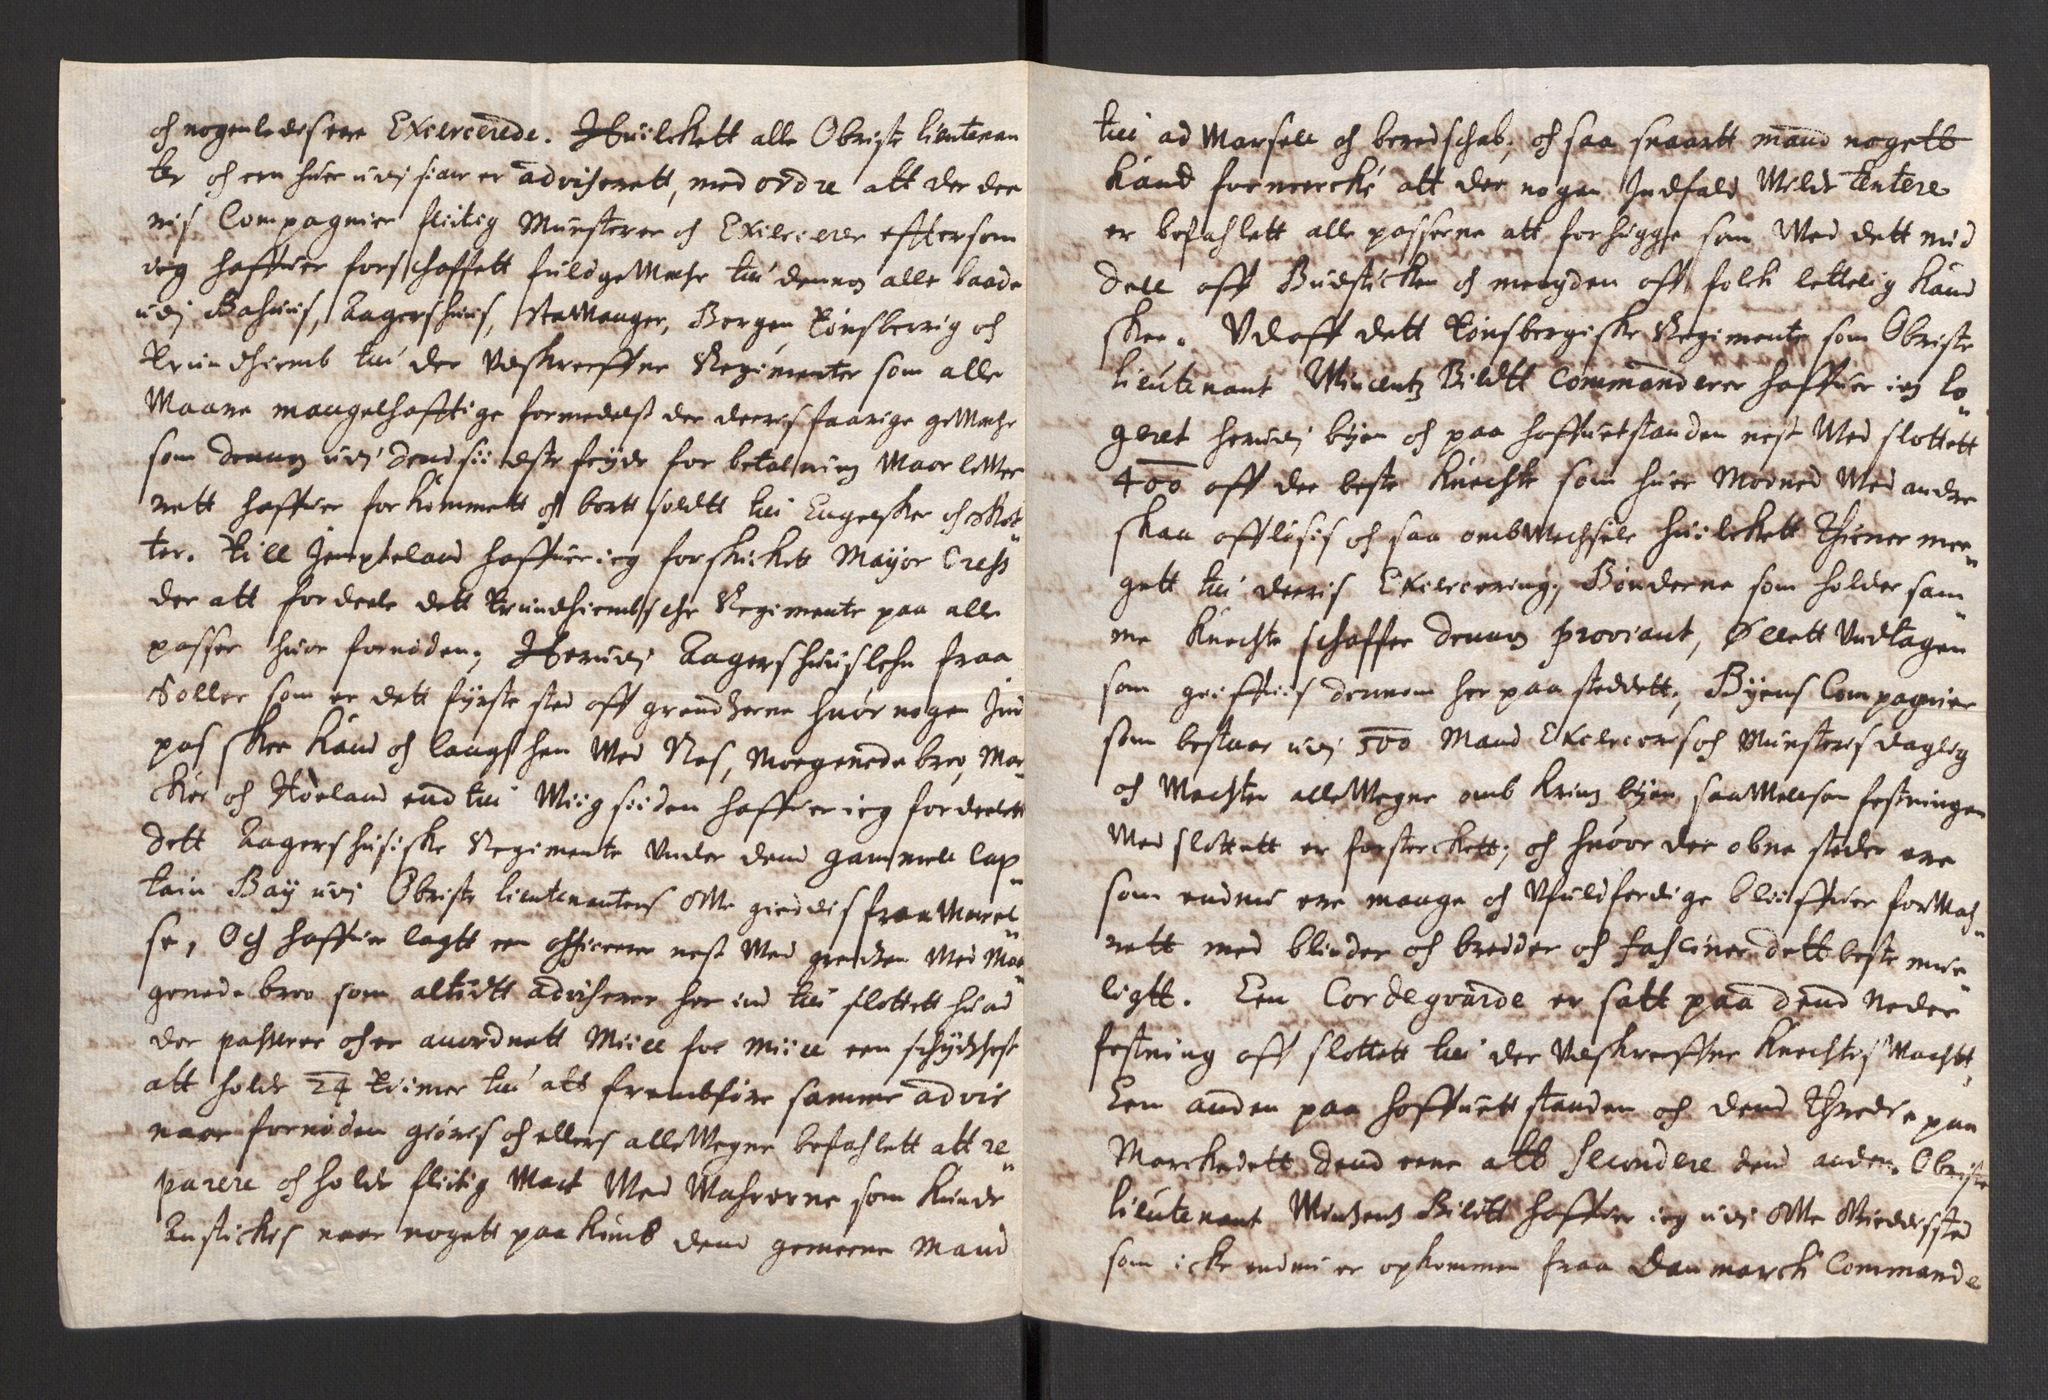 och nogenledis ere Exercerede. Huilckett alle Obriste lieutenan
ter och een huer udj siær er adviserett, med ordre att der dee
ris Compagnier flitig Munsterer och Exercerer efftersom
ieg haffuer forschaffett fuldgewehr till dennom alle baade
udj Bahuus, Aagershuus, Stawanger, Bergen, Tonsberrig och
Trundhiemb till der Udskreffne Regimenter som alle
Waare mangelhafftige formedelst der deeris faarige gewehr
som dennom udj dend siidste feyde for betalning Waar lewer
rett haffuer forkommett och bortt soldtt till Engelsker och Skot
ter. Till Jempteland haffuer ieg forskickett Mayor Cress
der att fordeele dett Trundhiembsche Regimente paa alle
passer huor fornøden, Herudj Aagershuuslehn fraa
Soller som er dett fyrste sted off grendzerne huor nogen Ind
pas skee kand och laangs hen Wed Nes, Morgenede broo, Mar
ker och Høeland end till Wiig siiden haffuer ieg fordeelett
dett Aagershusiske Regimente Under dend gammell Cap
tain Bay udj Obriste lieutenantens Owe gieddis frauærel
se, Och haffuer lagtt een officerer nest Wed grendzen Wed Mor
genede broo som altidtt adviserer her ind till slottett huad
der passerer och er anordnett Miill for miill een schydzhest
att holde 24 Timer till att frembføre samme advis
naar fornøden giøres och ellers alleWegne befahlett att re
parere och holde flitig Wact Wed Wahrerne som kunde
Anstickes naar nogett paakomb dend gemeene Mand
till ad Warsell och beredschab, och saa snaartt mand nogett
kand formercke att der nogen Indfald Wilde tentere
er befahlett alle passerne att forhugge som Wed dett mid
dell off Budsticken och mengden off folch lettelig kand
skee. Udaff dett Tonsbergiske Regimente som Obriste
lieutenant Wincentz Bildtt Commanderer haffuer ieg lo
geret herudj byen och paa hoffuetstanden nest Wed slottett
400 off der beste knechte som huer Moned Wed andre
skaa affløsis och saa ombWechsele huilckett Thiener mee
gett till deeris Exercering, Bønderne som holder sam
me knechte schaffer dennom proviant, Øllett Undtagen
som geiffuis dennem her paa steddett, Byens Compagnier
som bestaar udj 500 Mand Exerceris och Munsteris daglig
och Wachten alleWegne omb kring byen saaWell som festningen
Wed slottett er forsterckett, och huoor der obne steder ere
som endnu ere mange och Ufuldferdige bliiffuer forWah
rett med blinder och bredder och fasciner dett beste mue
ligtt. Een Cordeguarde er satt paa dend Neder
festning off slottett till der Udskreffne knechtes Wachtt,
Een anden paa hoffuett standen och dend Thredie paa
Marckedett dend eene att secondere dend anden. Obriste
lieutenant Wintzentz Bildtt haffuer ieg udj Owe Giedds sted
som icke endnu er opkommen fraa Danmarck Commande